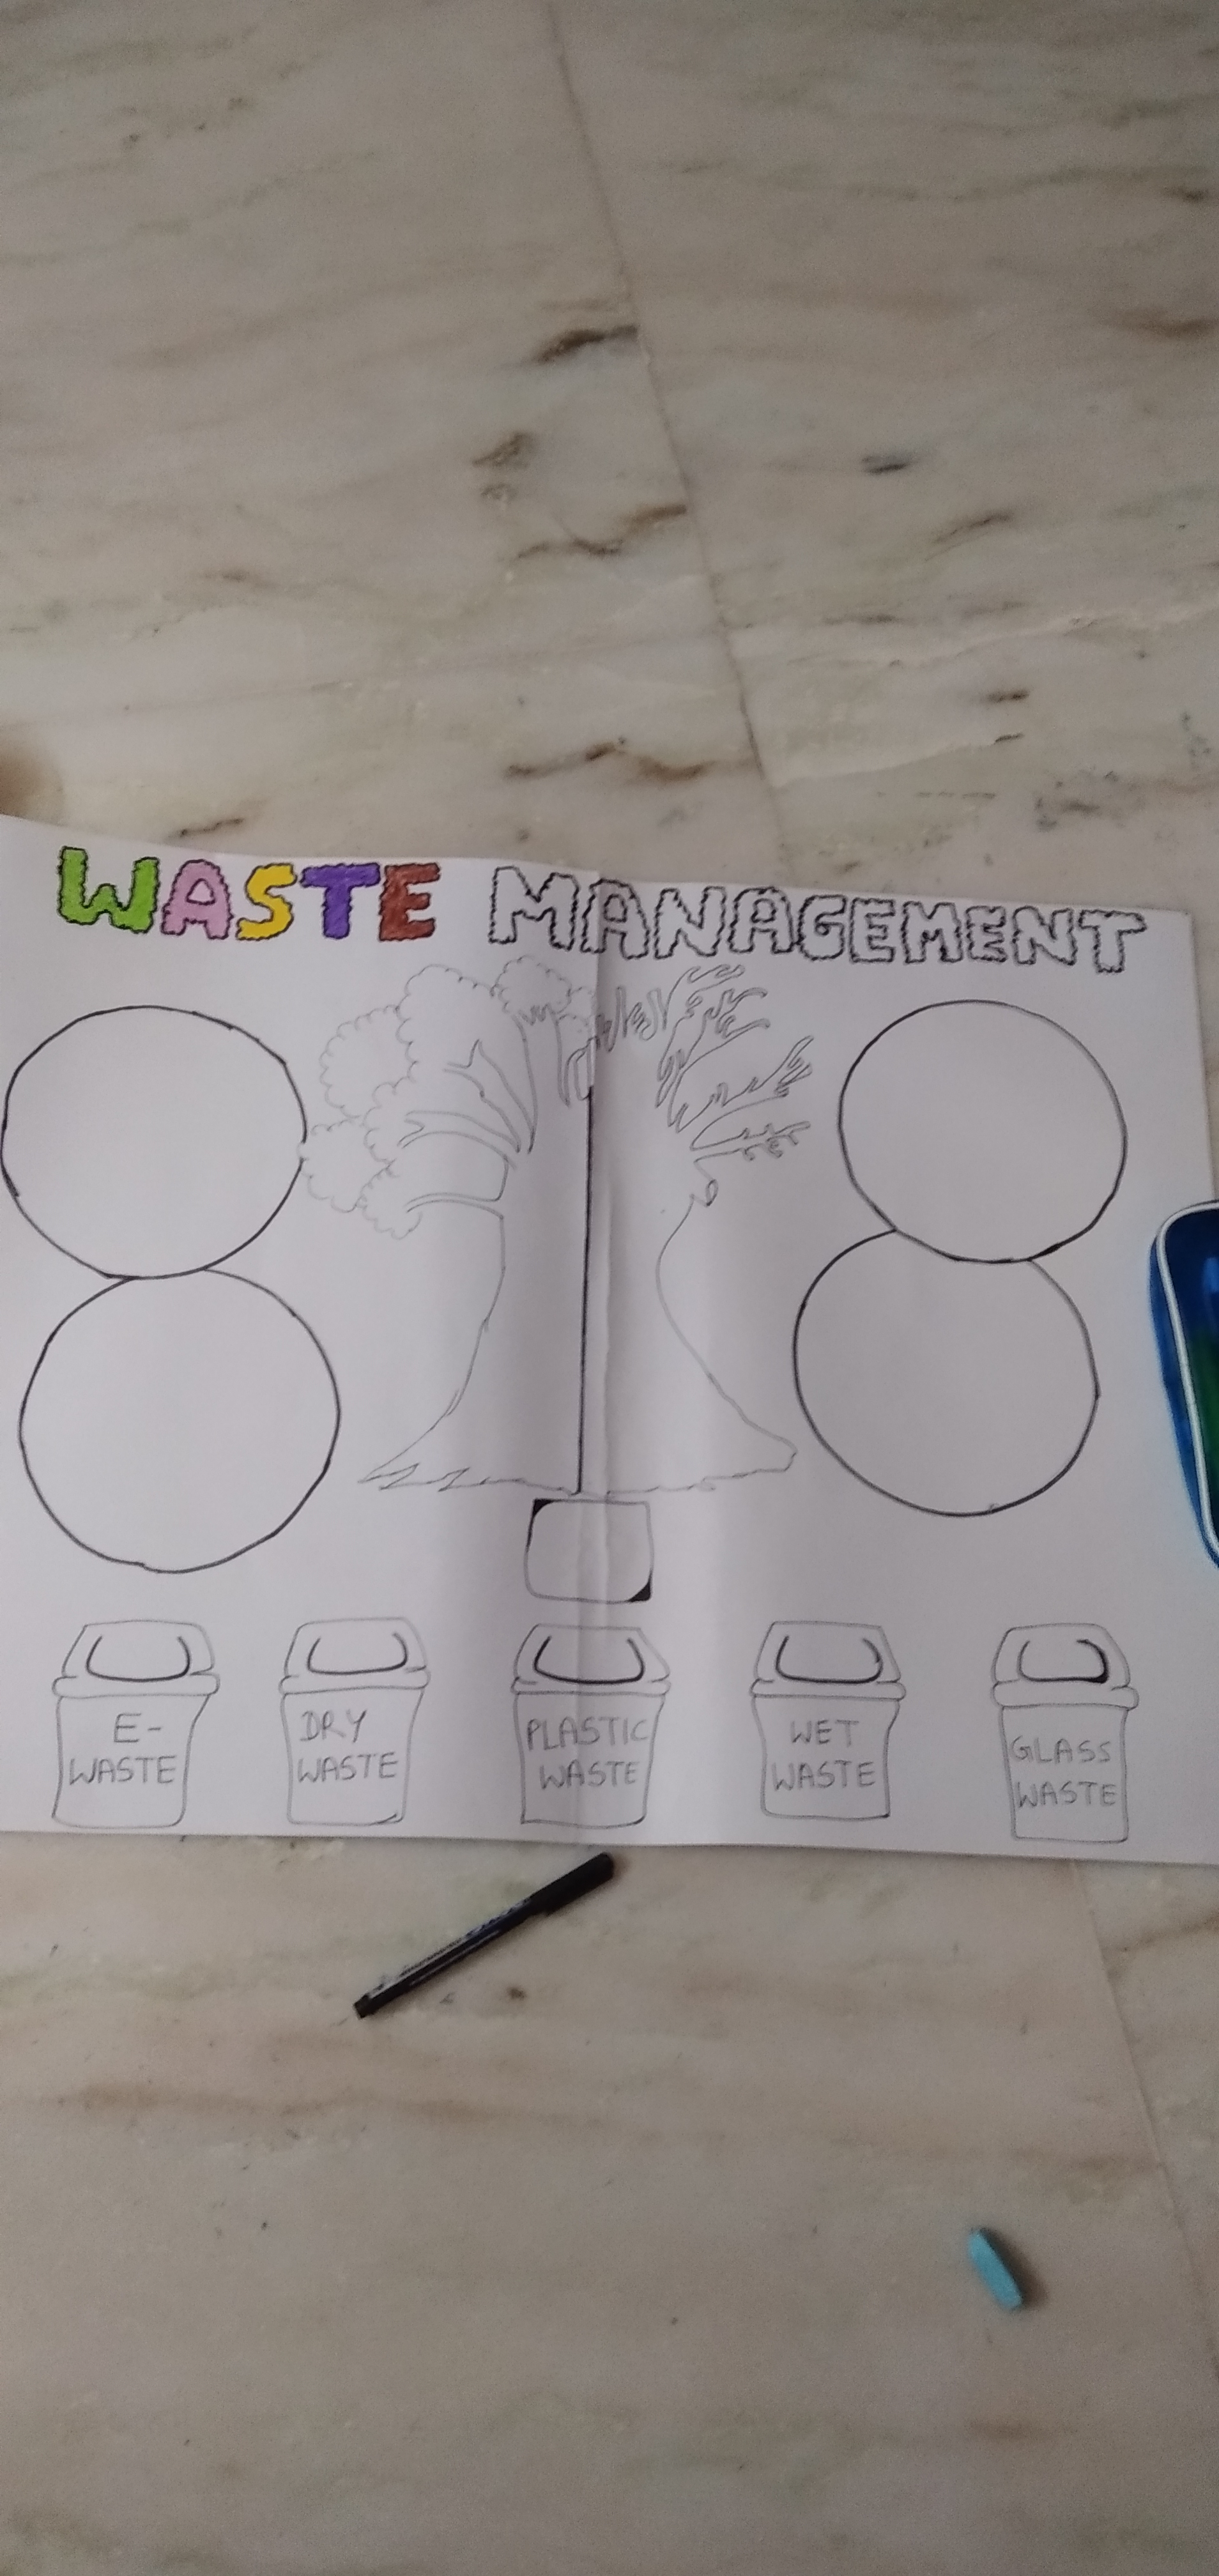 WASTE MANAGEMENT
E-
WASTE
DRY
WASTE
PLASTIC
WASTE
WET
WASTE
GLASS
WASTE